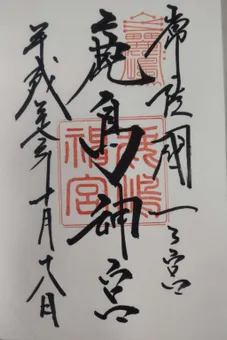 常陸國一之宮
鹿島神宮
平成 年十月十八日
鹿嶋神宮